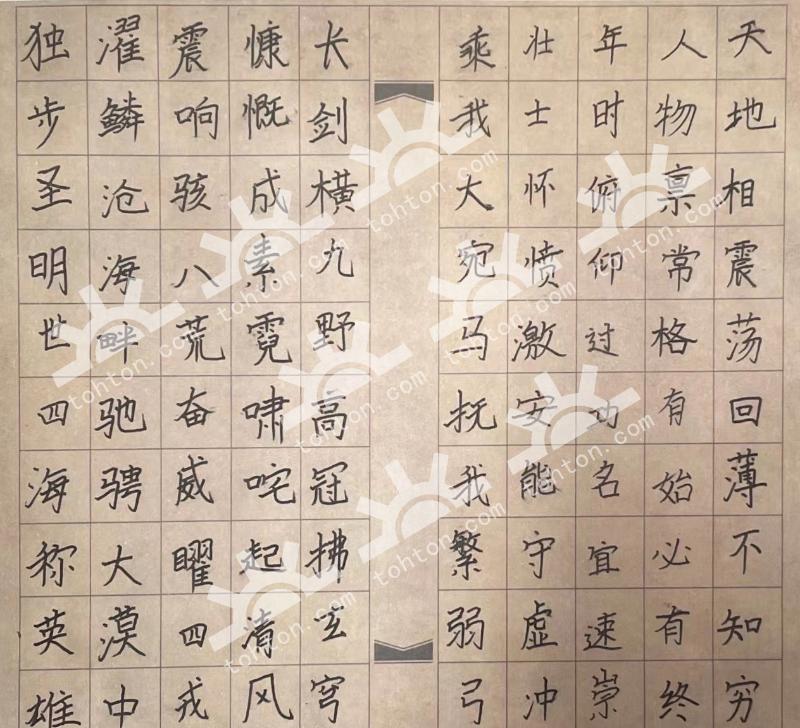 天地相震荡回薄不知穷
人物禀常格有始必有终
年时俯仰过功名宜速崇
壮士怀愤激安能守虚冲
乘我大宛马抚我繁弱弓
长剑横九野高冠拂玄穹
慷慨成素霓啸咤起清风
震响骇八荒奋威曜四戎
濯鳞沧海畔驰骋大漠中
独步圣明世四海称英雄
tohton.com
tohton.com
tohton.com
tohton.com
tohton.com
tohton.com
tohton.com
tohton.com
tohton.com